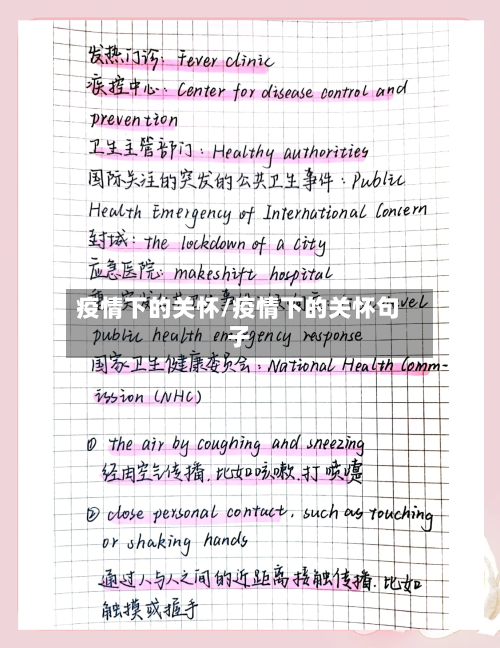 发热门诊: Fever clinic
疾控中心: Center for disease control and
prevention
卫生主管部门: Healthy authorities
国际关注的突发的公共卫生事件: Public
Health Emergency of International Concern
封城: the lockdown of a city
应急医院: makeshift hospital
疫情下的关怀/疫情下的关怀句
子
public health emergency response
国家卫生健康委员会: National Health Comm-
ission (NHC)
① the air by coughing and sneezing
经由空气传播, 比如咳嗽, 打喷嚏
② close personal contact, such as touching
or shaking hands
通过人与人之间的近距离接触传播, 比如
触摸或握手